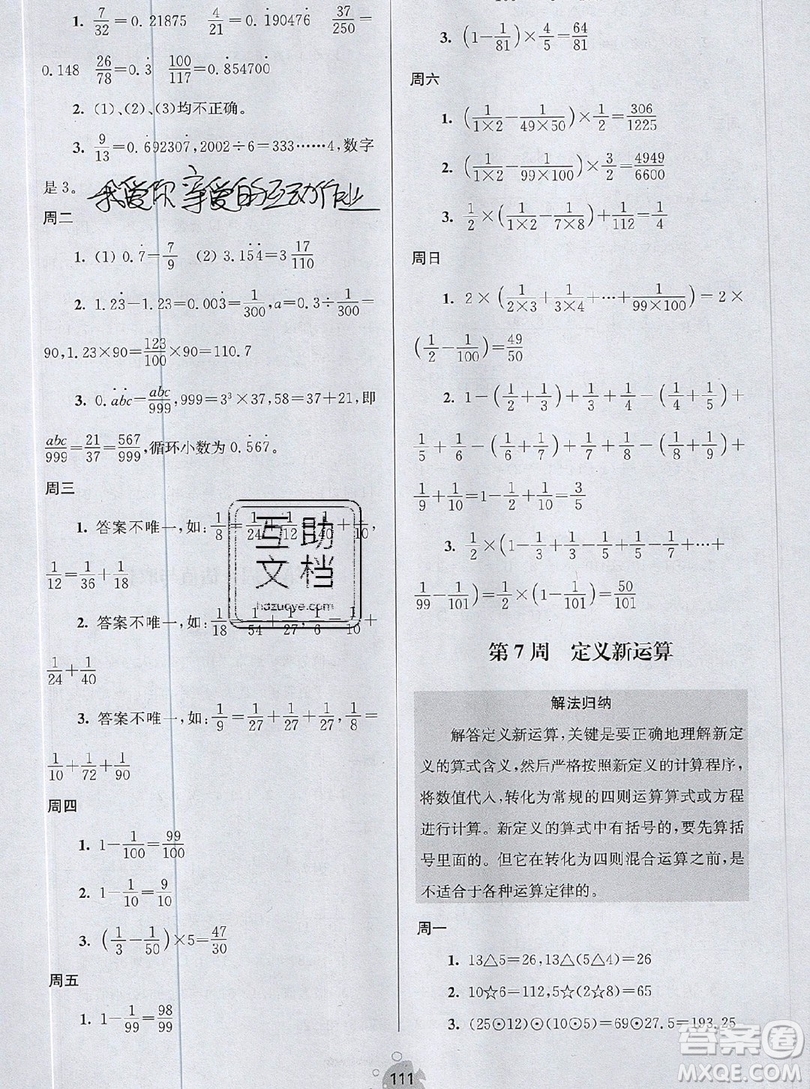 1. 7/32=0.21875 4/21=0.1̇90476̇ 31/210=
0.148 26/78=0.3̇ 100/117=0.8̇54700̇
2. (1)、(2)、(3)均不正确。
3. 9/13=0.6̇92307̇,2002÷6=333……4,数字
是3。
我爱你 亲爱的互动作业
周二
1. (1) 0.7̇=7/9 (2) 3.1̇54̇=3 17/110
2. 1.23̇-1.23=0.003̇=1/300,a=0.3÷1/300=
90,1.23×90=123/100×90=110.7
3. 0.ȧbċ=abc/999,999=3³×37,58=37+21,即
abc/999=21/37=567/999,循环小数为0.5̇67̇。
周三
1. 答案不唯一,如:1/8=1/24+
1/12=1/36+1/18
2. 答案不唯一,如:1/18=
1/24+1/40
3. 答案不唯一,如:1/9=1/27+1/27+1/27,1/9=
1/10+1/72+1/90
周四
1. 1-1/100=99/100
2. 1-1/10=9/10
3. (1/3-1/50)×5=47/30
周五
1. 1-1/99=98/99
3. (1-1/81)×4/5=64/81
周六
1. (1/1×2-1/49×50)×1/2=306/1225
2. (1/1×2-1/99×100)×1/2=4949/6600
3. 1/2×(1/1×2-1/7×8)+1/112=1/4
周日
1. 2×(1/2×3+1/3×4+…+1/99×100)=2×
(1/2-1/100)=49/50
2. 1-1/2+(1/2+1/3)-(1/3+1/4)+1/4+
1/5+1/6-(1/5+1/6)-(1/8+1/9)+1/8+
1/9+1/10=1-1/2+1/10=3/5
3. 1/2×(1-1/3+1/3-1/5+1/5-1/7+…+
1/99-1/101)=1/2×(1-1/101)=50/101
第7周 定义新运算
解法归纳
解答定义新运算,关键是要正确地理解新定
义的算式含义,然后严格按照新定义的计算程序,
将数值代入,转化为常规的四则运算算式或方程
进行计算。新定义的算式中有括号的,要先算括
号里面的。但它在转化为四则混合运算之前,是
不适合于各种运算定律的。
周一
1. 13△5=26,13△(5△4)=26
2. 10☆6=112,5☆(2☆8)=200
3. (25⊙12)⊙(10⊙5)=69⊙27.5=193.25
111
互助
文档
hazuoye.com
答案圈
MXQE.COM